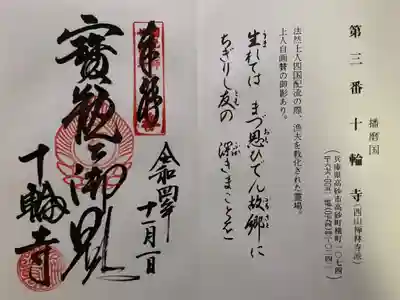 第三番 十輪寺(西山禅林寺派)
兵庫県高砂市高砂町横町一〇七四
播磨国
法然上人四国配流の際、漁夫を教化された霊場。
上人自画賛の御影あり。
生れては まづ思ひでん 故郷に
ちぎりし友の 深きまことを
令和四年十一月一日
奉拝
寶瓶之御影
十輪寺